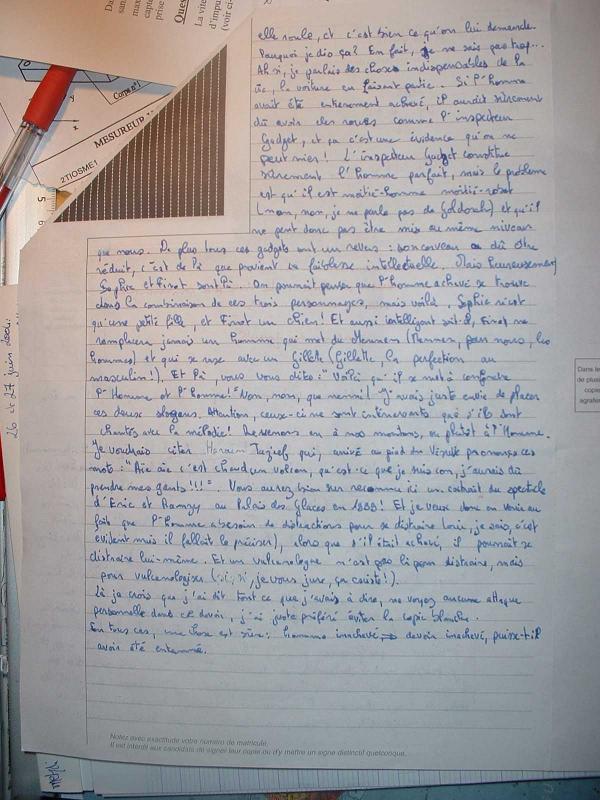 Dan
san
max
capte
prise
Ques
La vite
d'impu
(voir ci-
Corps n°1
y
x
MESUREUR
2TIOSME1
5
6
26 et 27 juin 2001
elle roule, et c'est bien ce qu'on lui demande.
Pourquoi je dis ça? En fait, je ne sais pas trop...
Ah si, je parlais des choses indispensables de la
vie, la voiture en faisant partie. Si l'homme
avait été entièrement achevé, il aurait sûrement
dû avoir des roues comme l'inspecteur
Gadget, et ça c'est une évidence qu'on ne
peut nier! L'inspecteur Gadget constitue
sûrement l'homme parfait, mais le problème
est qu'il est moitié-homme moitié-robot
(non, non, je ne parle pas de Goldorak) et qu'il
ne peut donc pas être mis au même niveau
que nous. De plus tous ces gadgets ont un revers: son cerveau a dû être
réduit, c'est de là que provient sa faiblesse intellectuelle. Mais heureusement
Sophie et Finot sont là. On pourrait penser que l'homme achevé se trouve
dans la combinaison de ces trois personnages, mais voilà, Sophie n'est
qu'une petite fille, et Finot un chien! Et aussi intelligent soit-il, Finot ne
remplacera jamais un homme qui met du Mennen (Mennen, pour nous, les
hommes) et qui se rase avec un Gillette (Gillette, la perfection au
masculin!). Et là, vous vous dites: "Voilà qu'il se met à confondre
l'Homme et l'homme!" Non, non, que nenni! J'avais juste envie de placer
ces deux slogans. Attention, ceux-ci ne sont intéressants que s'ils sont
chantés avec la mélodie! Revenons en à nos moutons, ou plutôt à l'Homme.
Je voudrais citer Haroun Tazieff qui, arrivé au pied du Vésuve prononça ces
mots: "Aïe aïe c'est chaud un volcan, qu'est-ce que je suis con, j'aurais dû
prendre mes gants!!!". Vous aurez bien sur reconnu ici un extrait du spectacle
d'Eric et Ramzy au Palais des Glaces en 1999! Et je veux donc en venir au
fait que l'Homme a besoin de distractions pour se distraire (oui, je sais, c'est
évident mais il fallait le préciser), alors que s'il était achevé, il pourrait se
distraire lui-même. Et un vulcanologue n'est pas là pour distraire, mais
pour vulcanologiser (si, si, je vous jure, ça existe!).
Là je crois que j'ai dit tout ce que j'avais à dire, ne voyez aucune attaque
personnelle dans ce devoir, j'ai juste préféré éviter la copie blanche.
En tous cas, une chose est sûre: homme inachevé => devoir inachevé, puisse-t-il
avoir été entamé.
Notez avec exactitude votre numéro de matricule.
Il est interdit aux candidats de signer leur copie ou d'y mettre un signe distinctif quelconque.
Dans le
de plusi
copie
agrafer